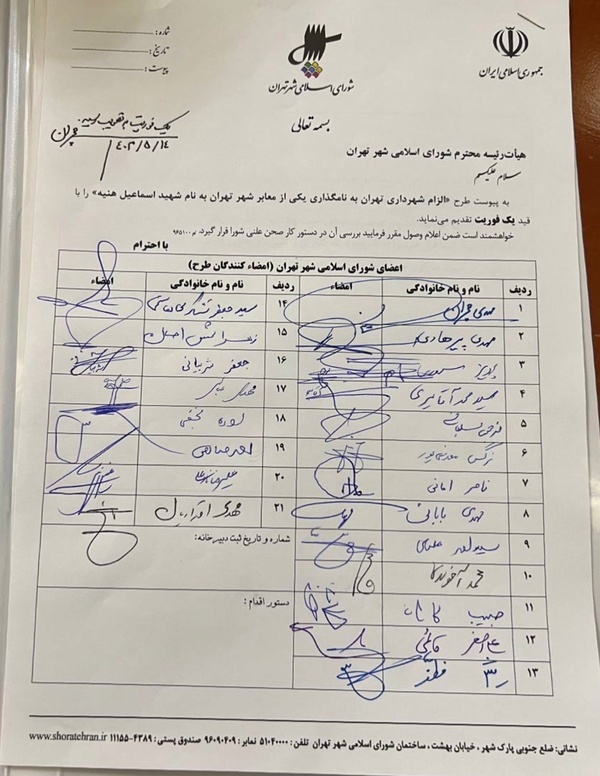 جمهوری اسلامی ایران
شورای اسلامی شهر تهران
شماره:
تاریخ:
پیوست:
بسمه تعالی
۴۰۳/۵/۱۴
هیأت رئیسه محترم شورای اسلامی شهر تهران
سلام علیکم
به پیوست طرح «الزام شهرداری تهران به نامگذاری یکی از معابر شهر تهران به نام شهید اسماعیل هنیه» را با
قید یک فوریت تقدیم می‌نماید.
خواهشمند است ضمن اعلام وصول مقرر فرمایید بررسی آن در دستور کار صحن علنی شورا قرار گیرد.
با احترام
اعضای شورای اسلامی شهر تهران (امضاء کنندگان طرح)
ردیف نام و نام خانوادگی امضاء ردیف نام و نام خانوادگی امضاء
۱ مهدی چمران ۱۴ سید جعفر تشکری هاشمی
۲ مهدی پیرهادی ۱۵ زهرا شمس احسان
۳ پرویز سروری ۱۶ جعفر شربیانی
۴ سید محمد آقامیری ۱۷ مهدی عباسی
۵ ۱۸ سوده نجفی
۶ نرگس معدنی پور ۱۹ احمد صادقی
۷ ناصر امانی ۲۰ علیرضا نادعلی
۸ مهدی بابائی ۲۱ مهدی اقراریان
۹ سید احمد علوی
۱۰ محمد آخوندی
۱۱ حبیب کاشانی
۱۲ علی اصغر قائمی
۱۳
شماره و تاریخ ثبت دبیرخانه:
دستور اقدام:
نشانی: ضلع جنوبی پارک شهر، خیابان بهشت، ساختمان شورای اسلامی شهر تهران تلفن: ۵۱۰۴۰۰۰۰ نمابر: ۹۶۰۹۰۴۰۹ صندوق پستی: ۴۳۸۹-۱۱۱۵۵ www.shoratehran.ir